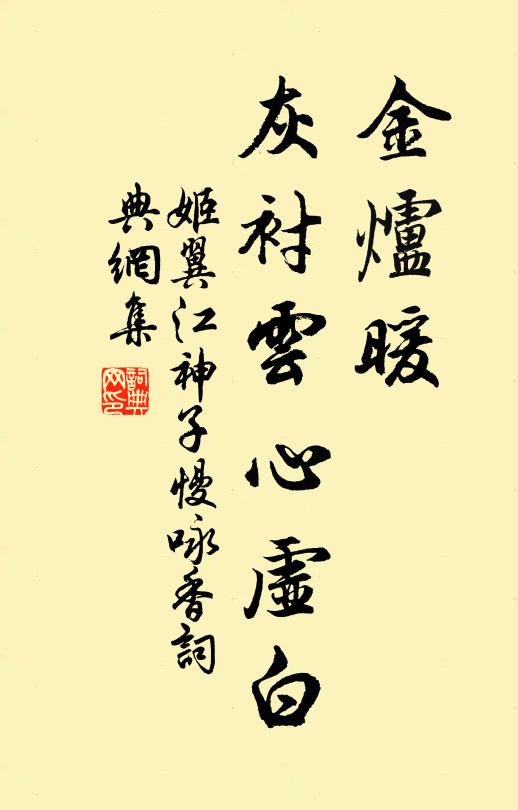 金爐暖
灰襯雲心虛白
姬翼江神子慢咏香詞
典網集
詞典網印